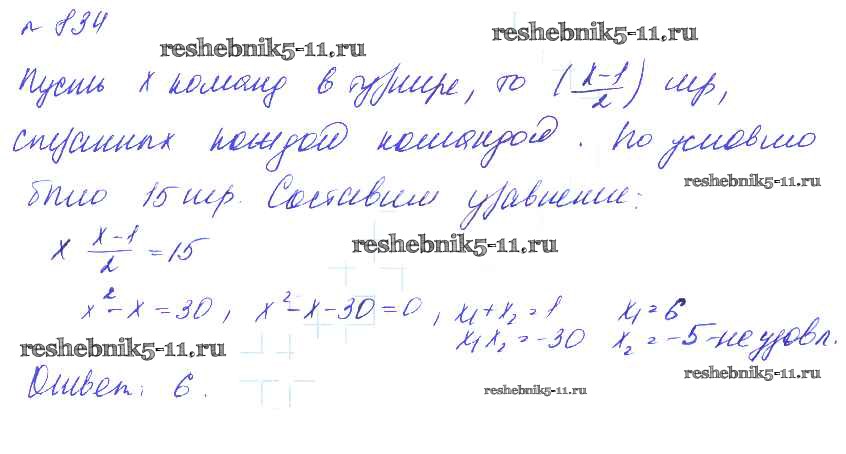 № 834
reshebnik5-11.ru
reshebnik5-11.ru
Пусть х команд в турнире, то (х-1/2) игр,
сыгранных каждой командой. По условию
reshebnik5-11.ru
было 15 игр. Составим уравнение:
х х-1/2 = 15
reshebnik5-11.ru
х² - х = 30, х² - х - 30 = 0, х₁ + х₂ = 1 х₁ = 6
х₁ х₂ = -30 х₂ = -5 - не удовл.
reshebnik5-11.ru
reshebnik5-11.ru
Ответ: 6.
reshebnik5-11.ru